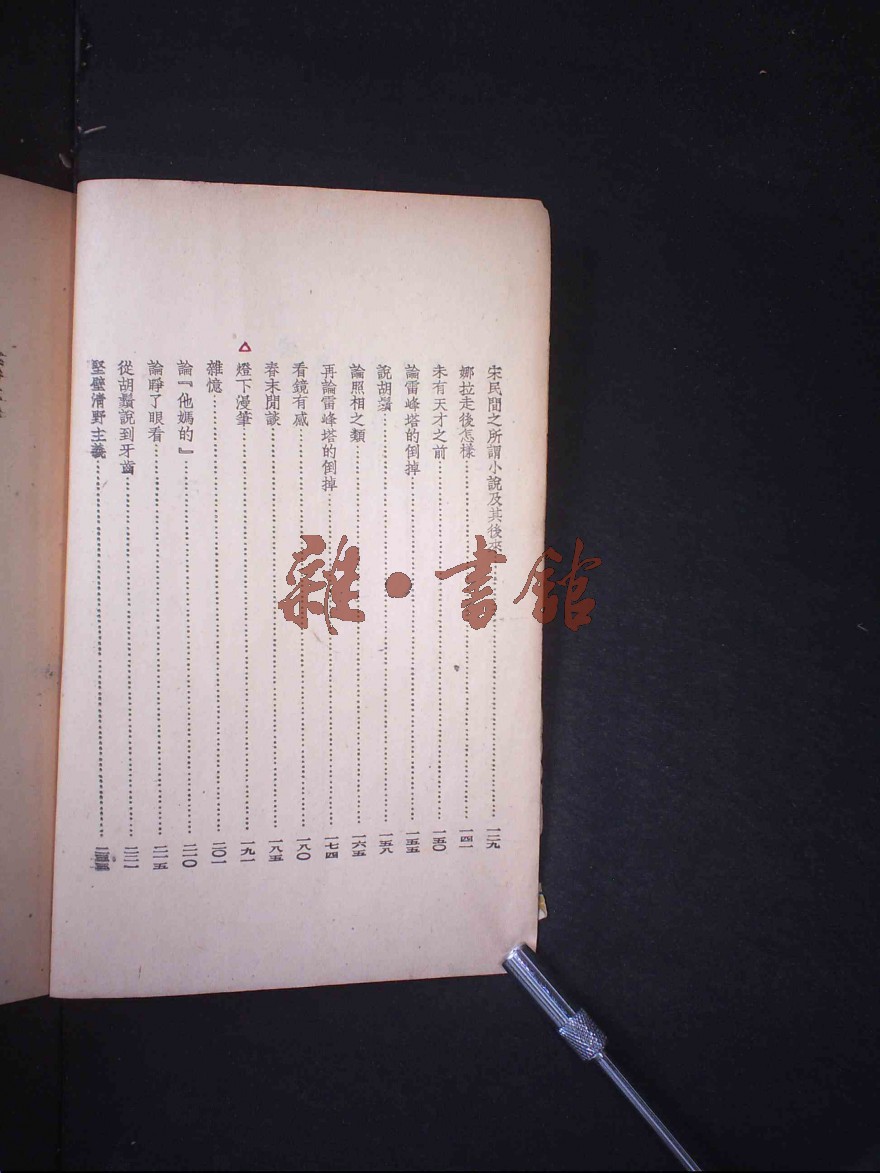 宋民間之所謂小說及其後來……一二九
娜拉走後怎樣……一四一
未有天才之前……一五〇
論雷峰塔的倒掉……一五五
說胡鬚……一五八
論照相之類……一六五
再論雷峰塔的倒掉……一七四
看鏡有感……一八〇
春末閒談……一八五
燈下漫筆……一九一
雜憶……二〇一
論『他媽的』……二一〇
論睜了眼看……二一五
從胡鬚說到牙齒……二二一
堅壁清野主義……
雜·書館